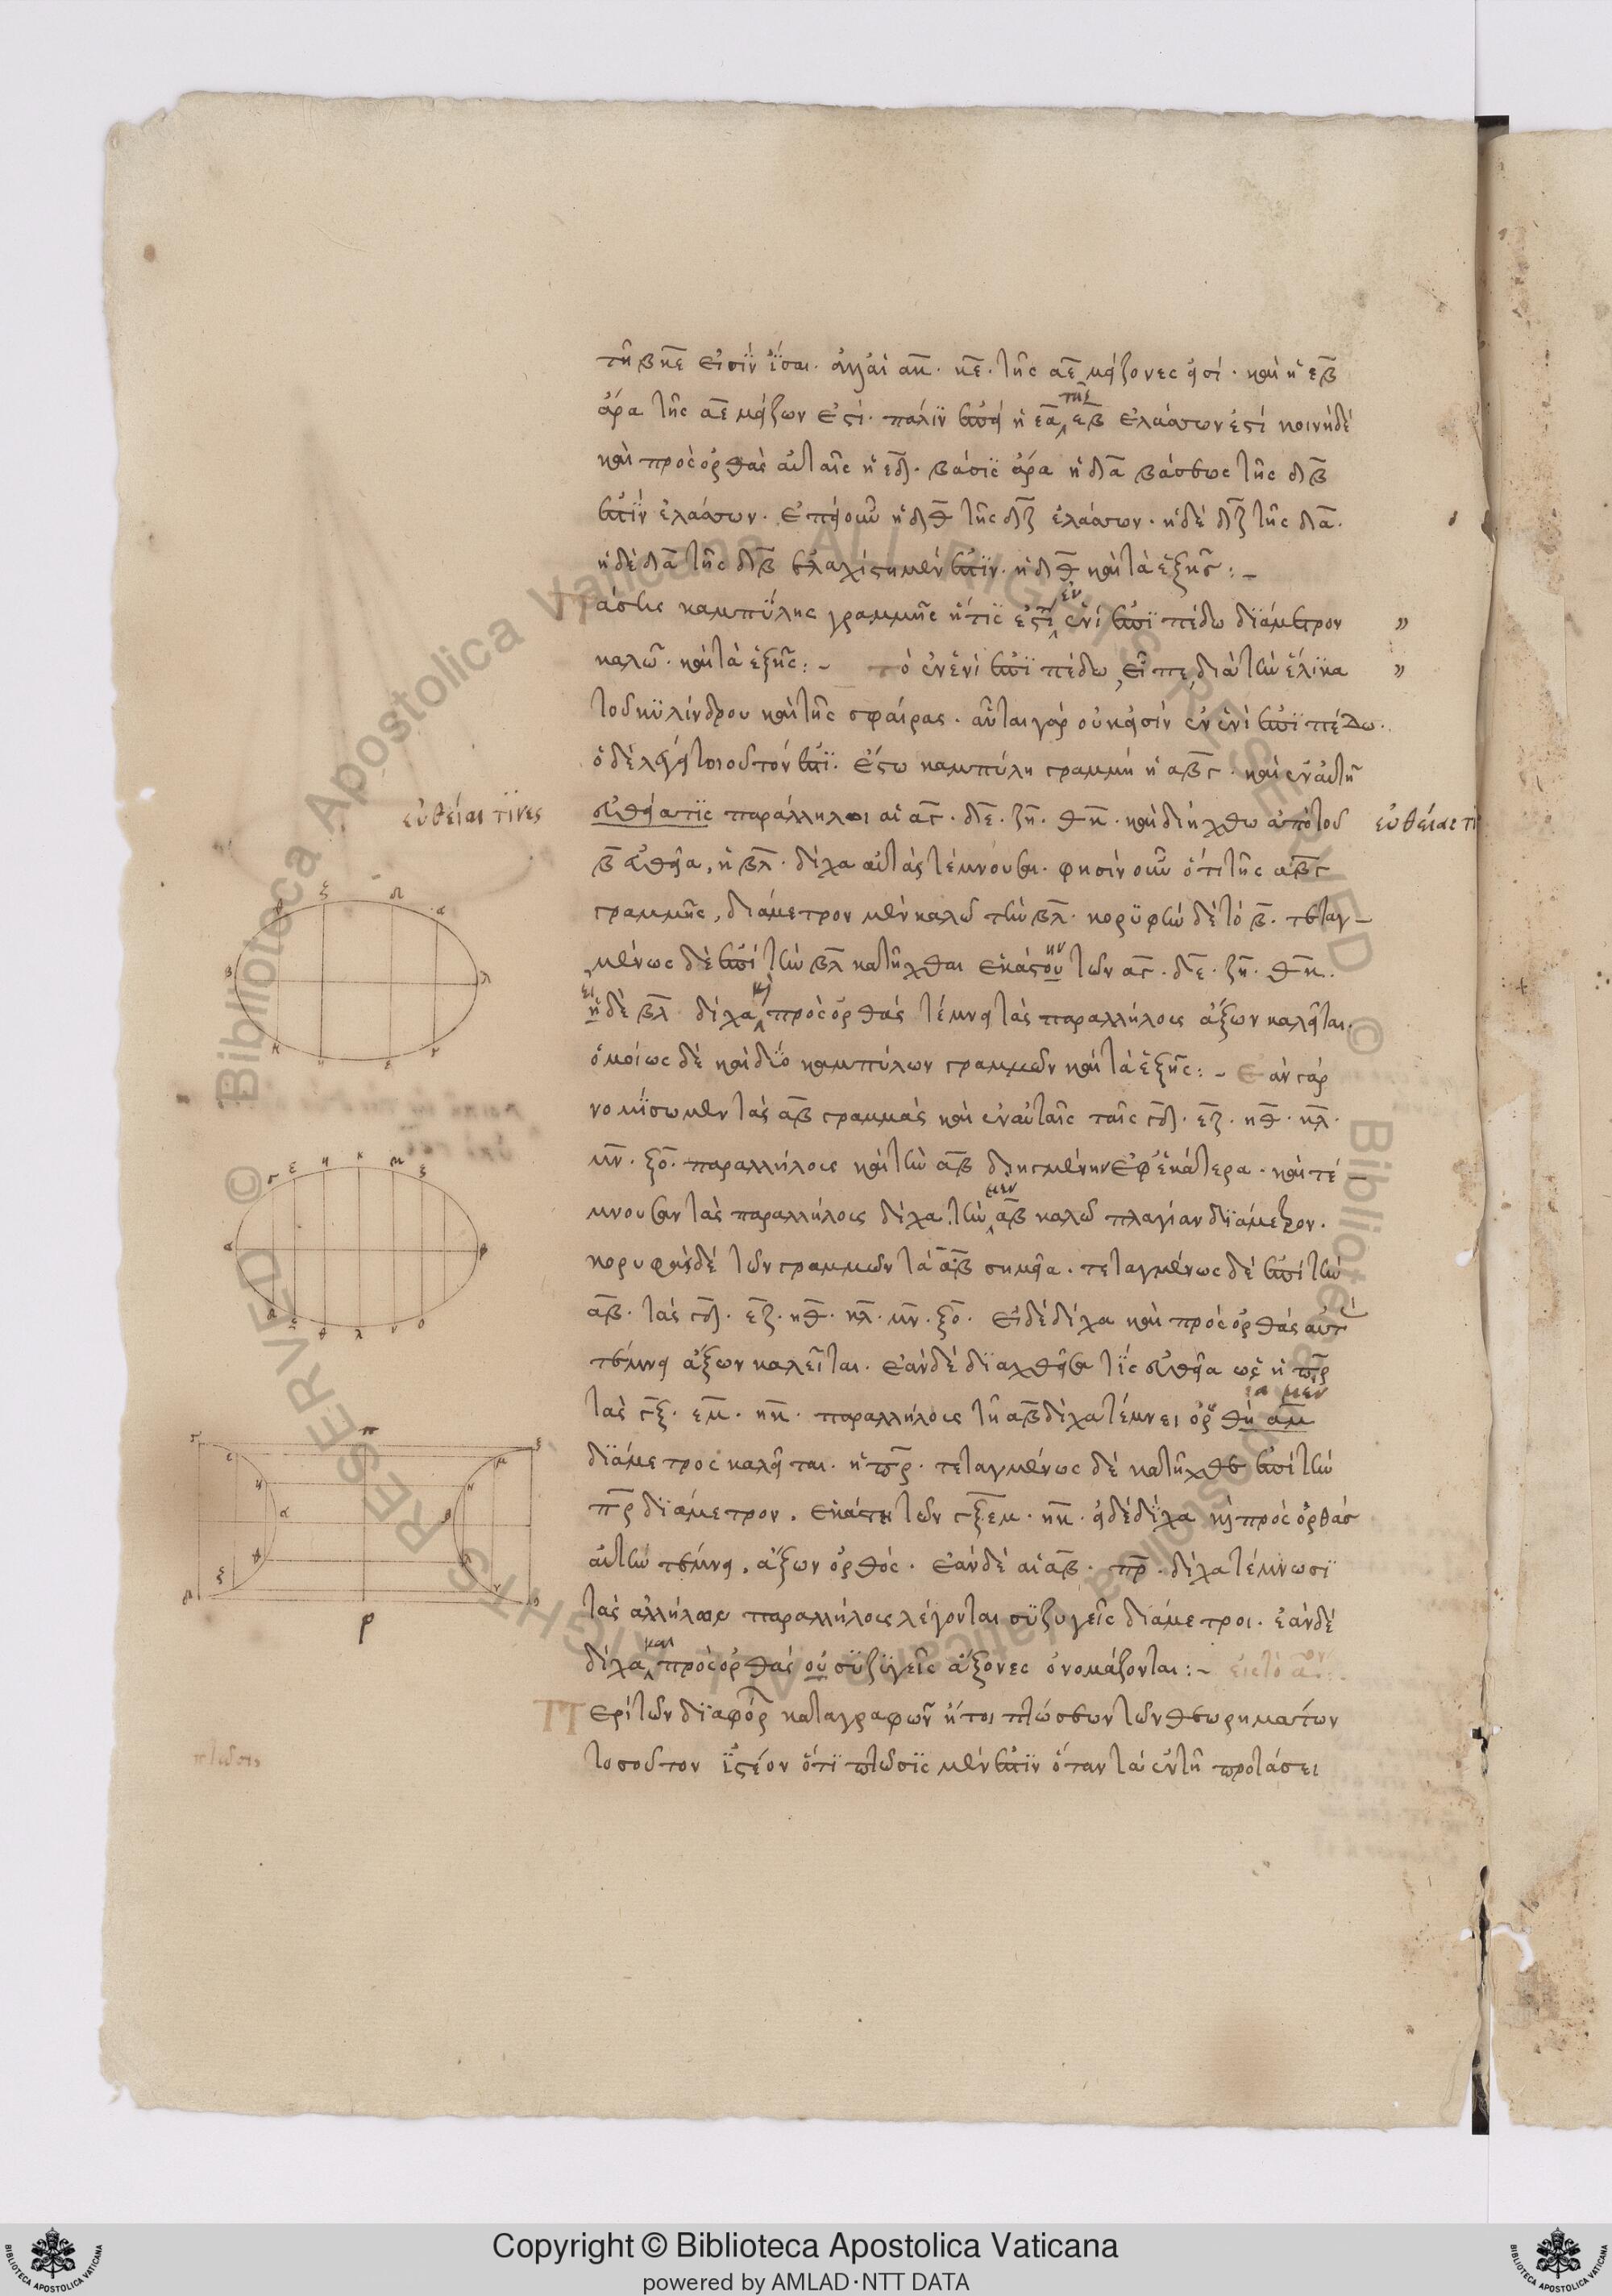 τῆ β κ̅ε̅ εἰσὶν ἴσαι. ἀλλαὶ α̅κ̅. κ̅ε̅. τῆς α̅ε̅ μείζονες εἰσί. καὶ ἡ ε̅β̅
ἄρα τῆς α̅ε̅ μείζων ἐστί. πάλιν ἐπεὶ ἡ ε̅α̅ τῆς ε̅β̅ ἐλάσσων ἐστί κοινὴ δὲ
καὶ πρὸς ὀρθὰς αὐταῖς ἡ ε̅δ̅. βάσις ἄρα ἡ δ̅α̅ βάσεως τῆς δ̅β̅
ἐστὶν ἐλάσσων. ἐπεὶ οὖν ἡ δ̅θ̅ τῆς δ̅ζ̅ ἐλάσσων. ἡ δὲ δ̅ζ̅ τῆς δ̅α̅.
ἡ δὲ δ̅α̅ τῆς δ̅β̅ ἐλαχίστη μέν ἐστιν. ἡ δ̅θ̅ καὶ τὰ ἑξῆς:-
Πάσης καμπύλης γραμμῆς ἥτις ἐστὶ ἐν ἑνὶ ἐπιπέδω διάμετρον
καλῶ. καὶ τὰ ἑξῆς:- τὸ ἐν ἑνὶ ἐπιπέδω, εἶπε, διὰ τὴν ἕλικα
τοῦ κυλίνδρου καὶ τῆς σφαίρας. αὗται γὰρ οὐκ εἰσὶν ἐν ἑνὶ ἐπιπέδω.
ὃ δὲ λέγει τοιοῦτόν ἐστι. ἔστω καμπύλη γραμμὴ ἡ α̅β̅γ̅. καὶ ἐν αὐτῆ
εὐθεῖαι τινες
εὐθεῖά τις παράλληλοι αἱ α̅γ̅. δ̅ε̅. ζ̅η̅. θ̅κ̅. καὶ διήχθω ἀπὸ τοῦ
εὐθείας τι
β̅ εὐθεῖα, ἡ β̅λ̅. δίχα αὐτὰς τέμνουσα. φησὶν οὖν ὅτι τῆς α̅β̅γ̅
γραμμῆς, διάμετρον μὲν καλῶ τὴν β̅λ̅. κορυφὴν δὲ τὸ β̅. τεταγ-
μένως δὲ ἐπὶ τὴν β̅λ̅ κατῆχθαι ἑκάστου ην τῶν α̅γ̅. δ̅ε̅. ζ̅η̅. θ̅κ̅.
εἰ ἡ δὲ β̅λ̅ δίχα καὶ πρὸς ὀρθὰς τέμνει τὰς παραλλήλους ἄξων καλεῖται.
ὁμοίως δὲ καὶ δύο καμπύλων γραμμῶν καὶ τὰ ἑξῆς:- Ἐὰν γὰρ
νομίσωμεν τὰς α̅β̅ γραμμὰς καὶ ἐν αὐταῖς ταῖς γ̅δ̅. ε̅ζ̅. η̅θ̅. κ̅λ̅.
μ̅ν̅. ξ̅ο̅. παραλλήλους καὶ τὴν α̅β̅ διηγμένην ἐφ' ἑκάτερα. καὶ τέ-
μνουσαν τὰς παραλλήλους δίχα. τὴν μὲν α̅β̅ καλῶ πλαγίαν διάμετρον.
κορυφὰς δὲ τῶν γραμμῶν τὰ α̅β̅ σημεῖα. τεταγμένως δὲ ἐπὶ τὴν
α̅β̅. τὰς γ̅δ̅. ε̅ζ̅. η̅θ̅. κ̅λ̅. μ̅ν̅. ξ̅ο̅. εἰ δὲ δίχα καὶ πρὸς ὀρθὰς αὐτὰς
τέμνει ἄξων καλεῖται. ἐὰν δὲ διαχθεῖσα τὶς εὐθεῖα ὡς ἡ π̅ρ̅
τὰς γ̅ξ̅. ε̅μ̅. η̅κ̅. παραλλήλους τῆ α̅β̅ δίχα τέμνει ὀρθὴ α μὲν
διάμετρος καλεῖται. ἡ π̅ρ̅. τεταγμένως δὲ κατῆχθε ἐπὶ τὴν
π̅ρ̅ διάμετρον. ἑκάστη τῶν γ̅ξ̅ ε̅μ̅. η̅κ̅. εἰ δὲ δίχα καὶ πρὸς ὀρθὰς
αὐτὴν τέμνει, ἄξων ὀρθός. ἐὰν δὲ αἱ α̅β̅. π̅ρ̅. δίχα τέμνωσι
τὰς ἀλλήλαις παραλλήλους λέγονται συζυγεῖς διάμετροι. ἐὰν δὲ
δίχα καὶ πρὸς ὀρθὰς οὐ συζυγεῖς ἄξονες ὀνομάζονται:-
Περὶ τῶν διαφόρ καταγραφῶν ἤτοι πτώσεων τῶν θεωρημάτων
πτῶσις
τοσοῦτον ἰστέον ὅτι πτῶσις μέν ἐστιν ὅταν τὰ ἐν τῆ προτάσει
Copyright © Biblioteca Apostolica Vaticana
powered by AMLAD·NTT DATA